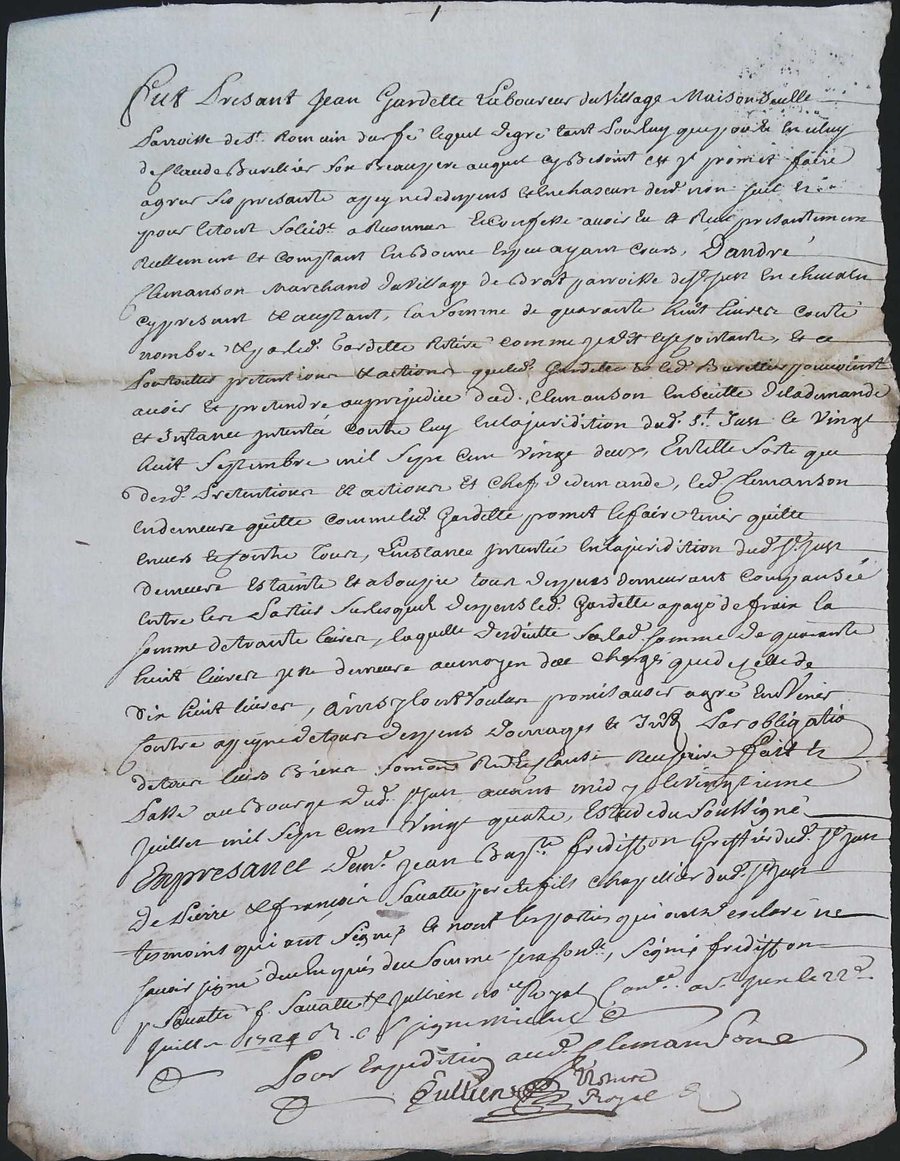 1
Fut Presant Jean Gardette Laboureur du Village Maison Seulle
Parroisse de St. Romain durfé lequel de gré tant pour luy que pour
de Claude Burellier son Beaupere auquel promet faire
agreer ses presante a peyne de depens et un chascun deux non seul
pour le tout solid. a Reconnu et Confesse avoir Eu et Receu presantement
Reellement et Comptant En Bonne Espece ayant Cours, D'andré
Clemanson Marchand du Village de Brot parroisse de St. Just En chevalu
cy present et acceptant, la somme de quarante huit livres Conté
nombré et par led. Gardette Retiré comme et Contante, et ce
Pour toutes pretentions et actions que led. Gardette et led. Burellier pouvoient
avoir et pretendre au prejudice dud. Clemanson En suitte de la demande
et Instance Intentée Contre luy En la juridition dud. St. Just le Vingt
huit Septembre mil Sept cent vingt deux, En telle sorte que
desd. Pretentions et actions et Chef de demande, led. Clemanson
En demeure quitte comme led. Gardette promet le faire tenir quitte
envers et Contre tous, L'instance Intentée En la juridition dud. St. Just
demeure Estainte et assoupie tous depens demeurant Compansée
Entre les Parties sur lesquels depens led. Gardette a payé de frais la
somme de trante livres, laquelle deduitte sur lad. somme de quarante
huit livres demeure au moyen de Chargé que de Celle de
dix huit livres, ainsy l'ont Voulu promis avoir agreé En Venir
Contre a peyne de tous depens domages et Int. Par obligatio
de tous leurs Biens Soumon. Ren. et Clause necessaire fait et
Passé au Bourg dud. St. Just avant midy le vingtieme
Juillet mil Sept cent Vingt quatre, Estude du Soussigné
En presance de me. Jean Bap.te fredisson Greffier dud. St. Just
de Pierre et françois Savatte pere et fils Chapellier dud. St. Just
tesmoins qui ont Signé, et nont les parties qui ont declaré ne
Savoir signé de ce Enquis deu Sommé, Signé fredisson
p Savatte f. Savatte et Jullien no.re Royal Con.lé a St. Just le 22e.
Juillet 1724 Signé
Pour Expedition aud. Clemanson
Jullien Notaire
Royal